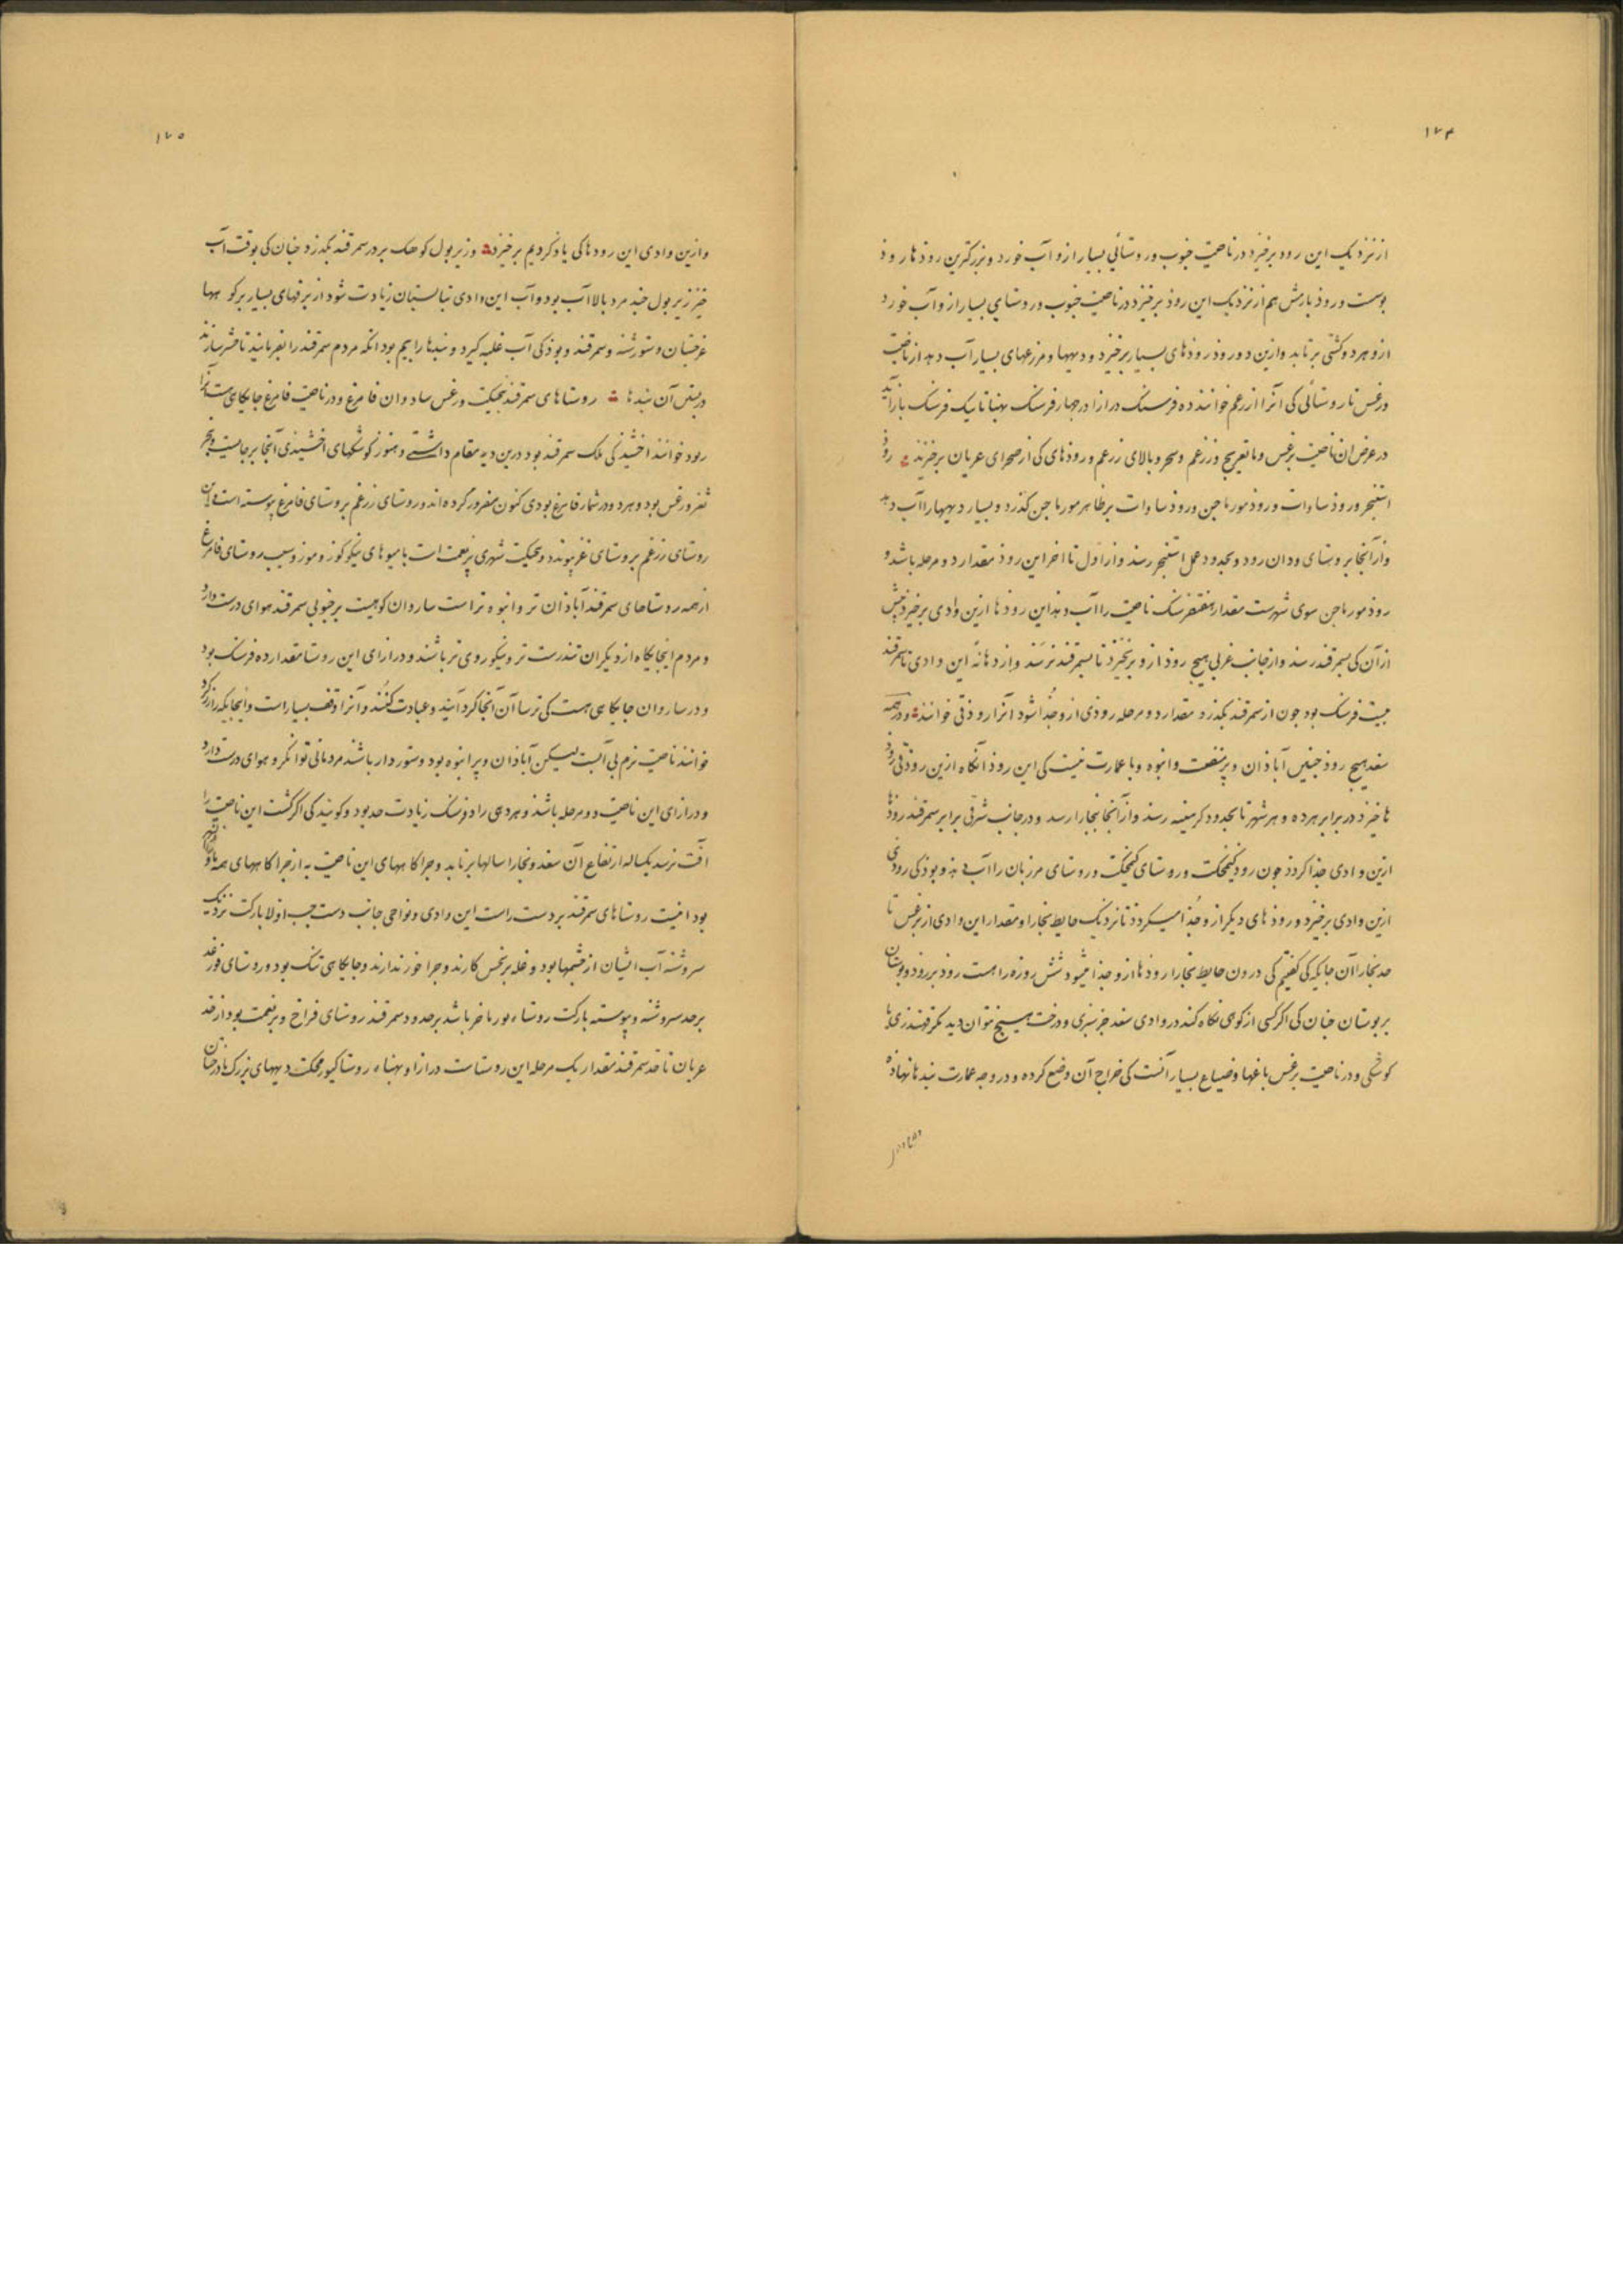 ۱۷۴
از نزدیک این رود برخیزد در ناحیت جنوب و روستائی بسیار ازو آب خورد و بزرکترین روذها روذ
بوست و روذ بارمش هم از نزدیک این روذ برخیزد در ناحیت جنوب و روستای بسیار ازو آب خورد
ازو هر دو کشتی برتابد وازین دو روذ روذهای بسیار برخیزد و دیهها و مزرعهای بسیار آب دهد از ناحیت
ورغس تا روستائی کی آنرا ازرغم خوانند ده فرسنک درازا در جهار فرسنک بهنا تا یک فرسنک بازآید
در عرض ان ناحیت برغس و مایمرغ و زرغم و سنجر و بالای زرغم و روذهای کی از صحرای عربان برخیزند روذ
اسنجر و روذ ساوات و روذ مورماجن و روذ ساوات بر ظاهر مورماجن کذرد و بسیار دیهها را آب دهد
و از آنجا بروستای ودان رود و بحدود عمل اسنجر رسد و از اول تا اخر این روذ مقدار دو مرحله باشد و
روذ مورماجن سوی شهرست مقدار هفت فرسنک ناحیت را آب دهد این روذها ازین وادی برخیزد بیش
از آن کی بسمرقند رسد و از جانب غربی هیج روذ ازو برنخیزد تا بسمرقند نرسد و از دهانه این وادی تا سمرقند
بیست فرسنک بود جون از سمرقند بکذرد مقدار دو مرحله روذی ازو جذا شود آنرا روذ فی خوانند و در همه
سغد هیج روذ جنین آباذان و بر منفعت و انبوه و با عمارت نیست کی این روذ آنکاه ازین روذ فی روذ
ها خیزد در برابر هر ده و هر شهر تا بحدود کرمینه رسد و از آنجا ببخارا رسد و در جانب شرقی برابر سمرقند روذها
ازین وادی جذا کردد جون رود کنجکت و روستای کنجکت و روستای مرزبان را آب دهد و بوذ کی رودی
ازین وادی برخیزد و روذهای دیکر ازو جذا میکردد تا نزدیک حایط بخارا و مقدار این وادی از برغس تا
حد بخارا آن جایکه کی کفتیم کی درون حایط بخارا روذها ازو جذا میشود شش روزه راهست روذ بر روذ و بوستان
بر بوستان جنان کی اکر کسی از کوهی نکاه کند در وادی سغد جز سبزی و درخت هیج نتوان دید مکر قهندزی یا
کوشکی و در ناحیت برغس باغها و ضیاع بسیار آنست کی خراج آن وضع کرده و در وجه عمارت بندها نهاذه
۱۷۵
و ازین وادی این رودها کی یاذ کردیم برخیزد و زیر بول کوهک بر در سمرقند بکذرد جنان کی بوقت آب
خیز زیر بول جند مرد بالا آب بود و آب این وادی تابستان زیادت شود از برفهای بسیار بر کوهها
غرجستان و سروشنه و سمرقند و بوذ کی آب غلبه کیرد و بندها را بیم بود آنکه مردم سمرقند را بفرمایند تا حشر سازند
در بستن آن بندها روستاهای سمرقند بنجیکت ورغس ساروان فامرغ و در ناحیت فامرغ جایکاهی ست آنرا
ریود خوانند اخشید کی ملک سمرقند بود درین دیه مقام داشتی و هنوز کوشکهای اخشیذی آنجا برجایست و سنجر
فغن ورغس بود و هر دو در شمار فامرغ بودی کنون مفرد کرده اند و روستای زرغم بروستای فامرغ بیوسته است و این
روستای زرغم بروستای غرغم بیوندد و بنجیکت شهری برنعمت است با میوهای نیکو کوز و موز و سیب روستای فامرغ
از همه روستاهای سمرقند آباذان تر و انبوه تر است ساروان کوهیست بر جنوبی سمرقند هوای درست دارد
و مردم اینجایکاه از دیکران تندرست تر و نیکو روی تر باشند و درازای این روستا مقدار ده فرسنک بود
و در ساروان جایکاهی هست کی ترساآن آنجا کرد آیند و عبادت کنند و آنرا وقف بسیار است و اینجایکه را زرکرد
خوانند ناحیت نرم بی آبست لیکن آباذان و بر انبوه بود و ستوردار باشند مردمانی توانکر و هوای درست دارد
و درازای این ناحیت دو مرحله باشد و هر دهی را دو فرسنک زیادت حد بود و کویند کی اکر کشت این ناحیت را
آفت نرسد یکساله ارتفاع آن سغد و بخارا سالها برتابد و جراکاههای این ناحیت به از جراکاههای همه
بود اینست روستاهای سمرقند بر دست راست این وادی و نواحی جانب دست جب اولا بارکت نزدیک
سروشنه آب ایشان از جشمها بود و غله بر نخس کارند و جرا خور ندارند و جایکاهی تنک بود و روستای فورغد
بر حد سروشنه و بیوسته بارکت روستاء بورماخر باشد بر حدود سمرقند روستای فراخ و برنعمت بود از حد
عربان تا حد سمرقند مقدار یک مرحله این روستاست درازا و بهناء روستا کبورمجکت دیههای بزرک با درختان